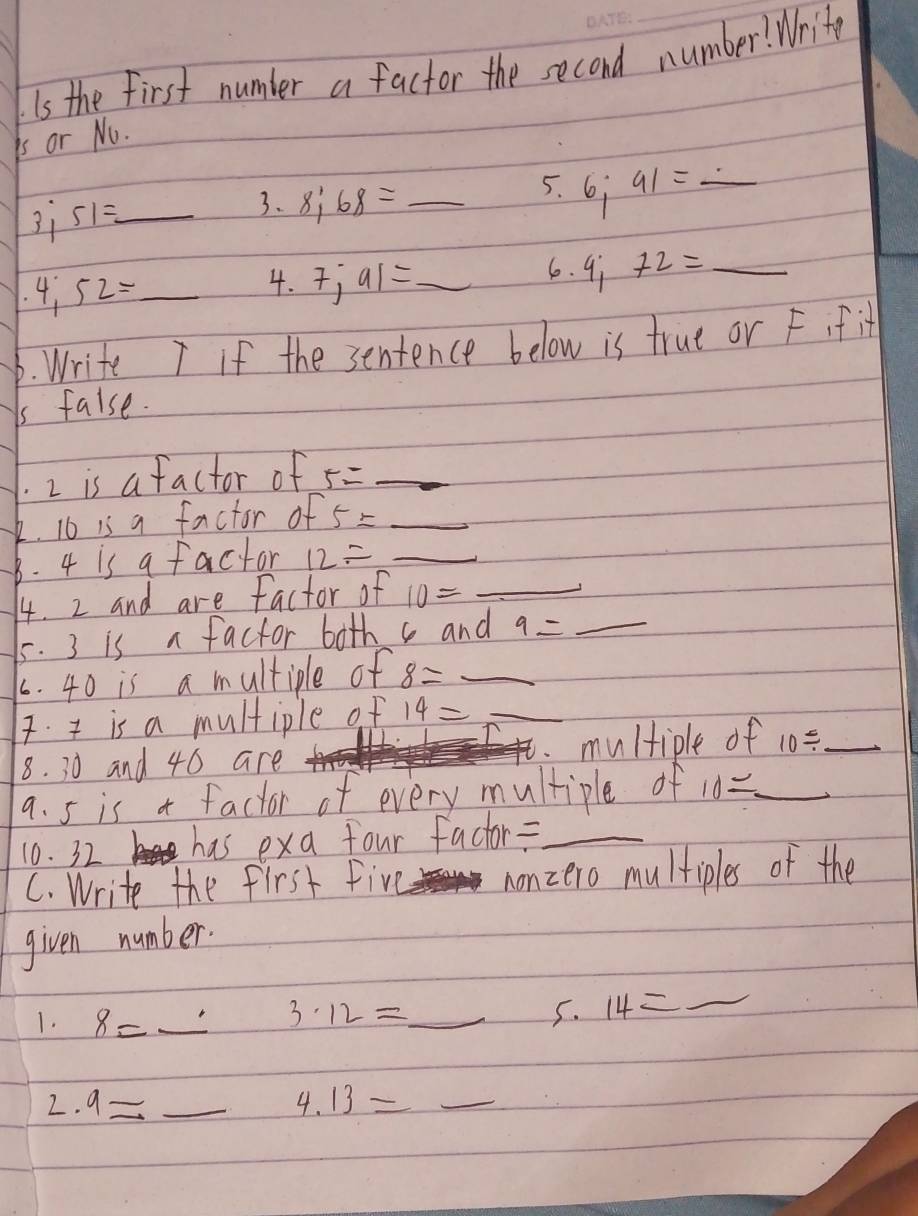 DATE:
. Is the First number a factor the second number? Write
s or No.
3; 51 = ___ 3. 8; 68 = ___ 5. 6; 91 = ___
. 4; 52 = ___ 4. 7; 91 = ___ 6. 9; 72 = ___
B. Write T if the sentence below is true or F if it
s false.
1. 2 is a factor of 5 = ___
2. 10 is a factor of 5 = ___
3. 4 is a factor 12 = ___
4. 2 and are factor of 10 = ___
5. 3 is a factor both 6 and 9 = ___
6. 40 is a multiple of 8 = ___
7. 7 is a multiple of 14 = ___
8. 30 and 40 are multiple of 10 = ___
9. 5 is a factor of every multiple of 10 = ___
10. 32 has exa four factor = ___
C. Write the first five nonzero multiples of the
given number.
1. 8 = ___ 3. 12 = ___ 5. 14 = ___
2. 9 = ___ 4. 13 = ___